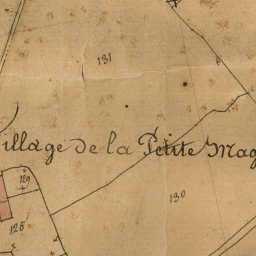 131
illage de la Petite Mag
129
130
128